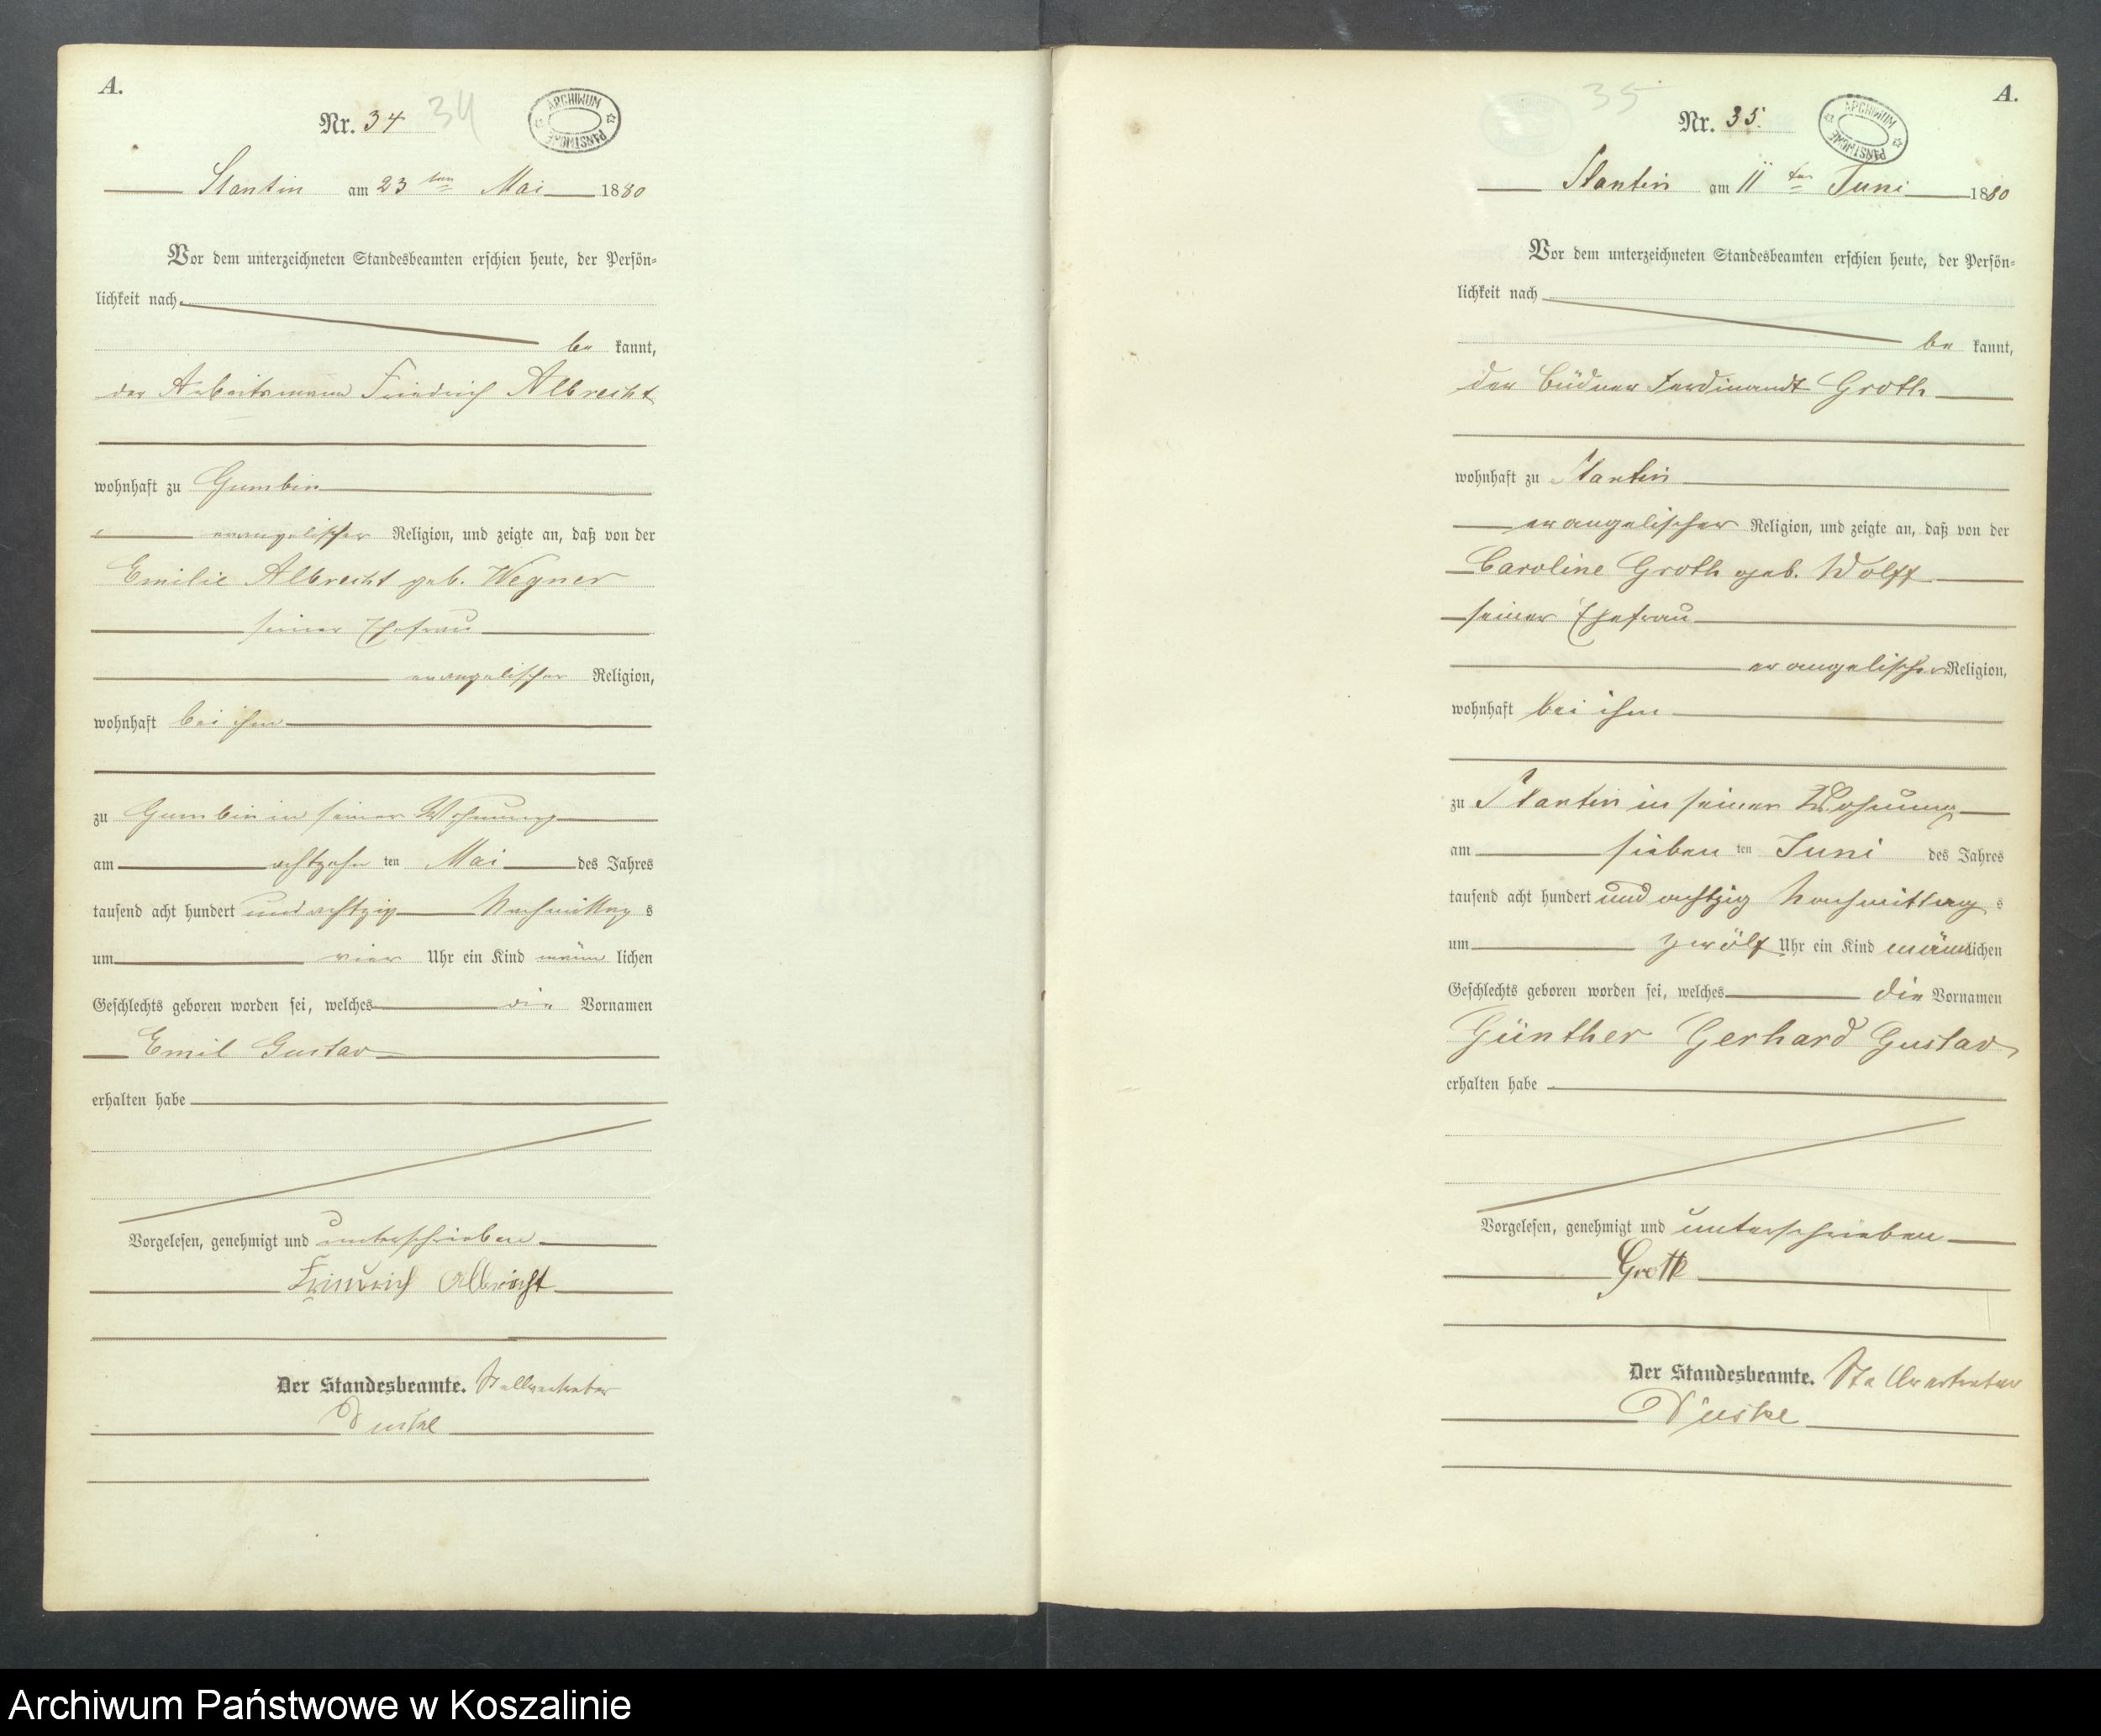 A.
Nr. 34 34
ARCHIWUM PAŃSTWOWE
Stantin am 23 ten Mai 1880
Vor dem unterzeichneten Standesbeamten erschien heute, der Persön-
lichkeit nach
be kannt,
der Arbeitsmann Friedrich Albrecht
wohnhaft zu Gumbin
evangelischer Religion, und zeigte an, daß von der
Emilie Albrecht geb. Wegner
seiner Ehefrau
evangelischer Religion,
wohnhaft bei ihm
zu Gumbin in seiner Wohnung
am achtzehn ten Mai des Jahres
tausend acht hundert und achtzig Nachmittag s
um vier Uhr ein Kind männ lichen
Geschlechts geboren worden sei, welches die Vornamen
Emil Gustav
erhalten habe
Vorgelesen, genehmigt und unterschrieben
Friedrich Albrecht
Der Standesbeamte. Stellvertreter
A.
35
Nr. 35.
ARCHIWUM PAŃSTWOWE
Stantin am 11 ten Juni 1880
Vor dem unterzeichneten Standesbeamten erschien heute, der Persön-
lichkeit nach
be kannt,
der Büdner Ferdinandt Groth
wohnhaft zu Stantin
evangelischer Religion, und zeigte an, daß von der
Caroline Groth geb. Wolff
seiner Ehefrau
evangelischer Religion,
wohnhaft bei ihm
zu Stantin in seiner Wohnung
am sieben ten Juni des Jahres
tausend acht hundert und achtzig Nachmittag s
um zwölf Uhr ein Kind männlichen
Geschlechts geboren worden sei, welches die Vornamen
Günther Gerhard Gustav
erhalten habe
Vorgelesen, genehmigt und unterschrieben
Groth
Der Standesbeamte. Stellvertreter
Archiwum Państwowe w Koszalinie